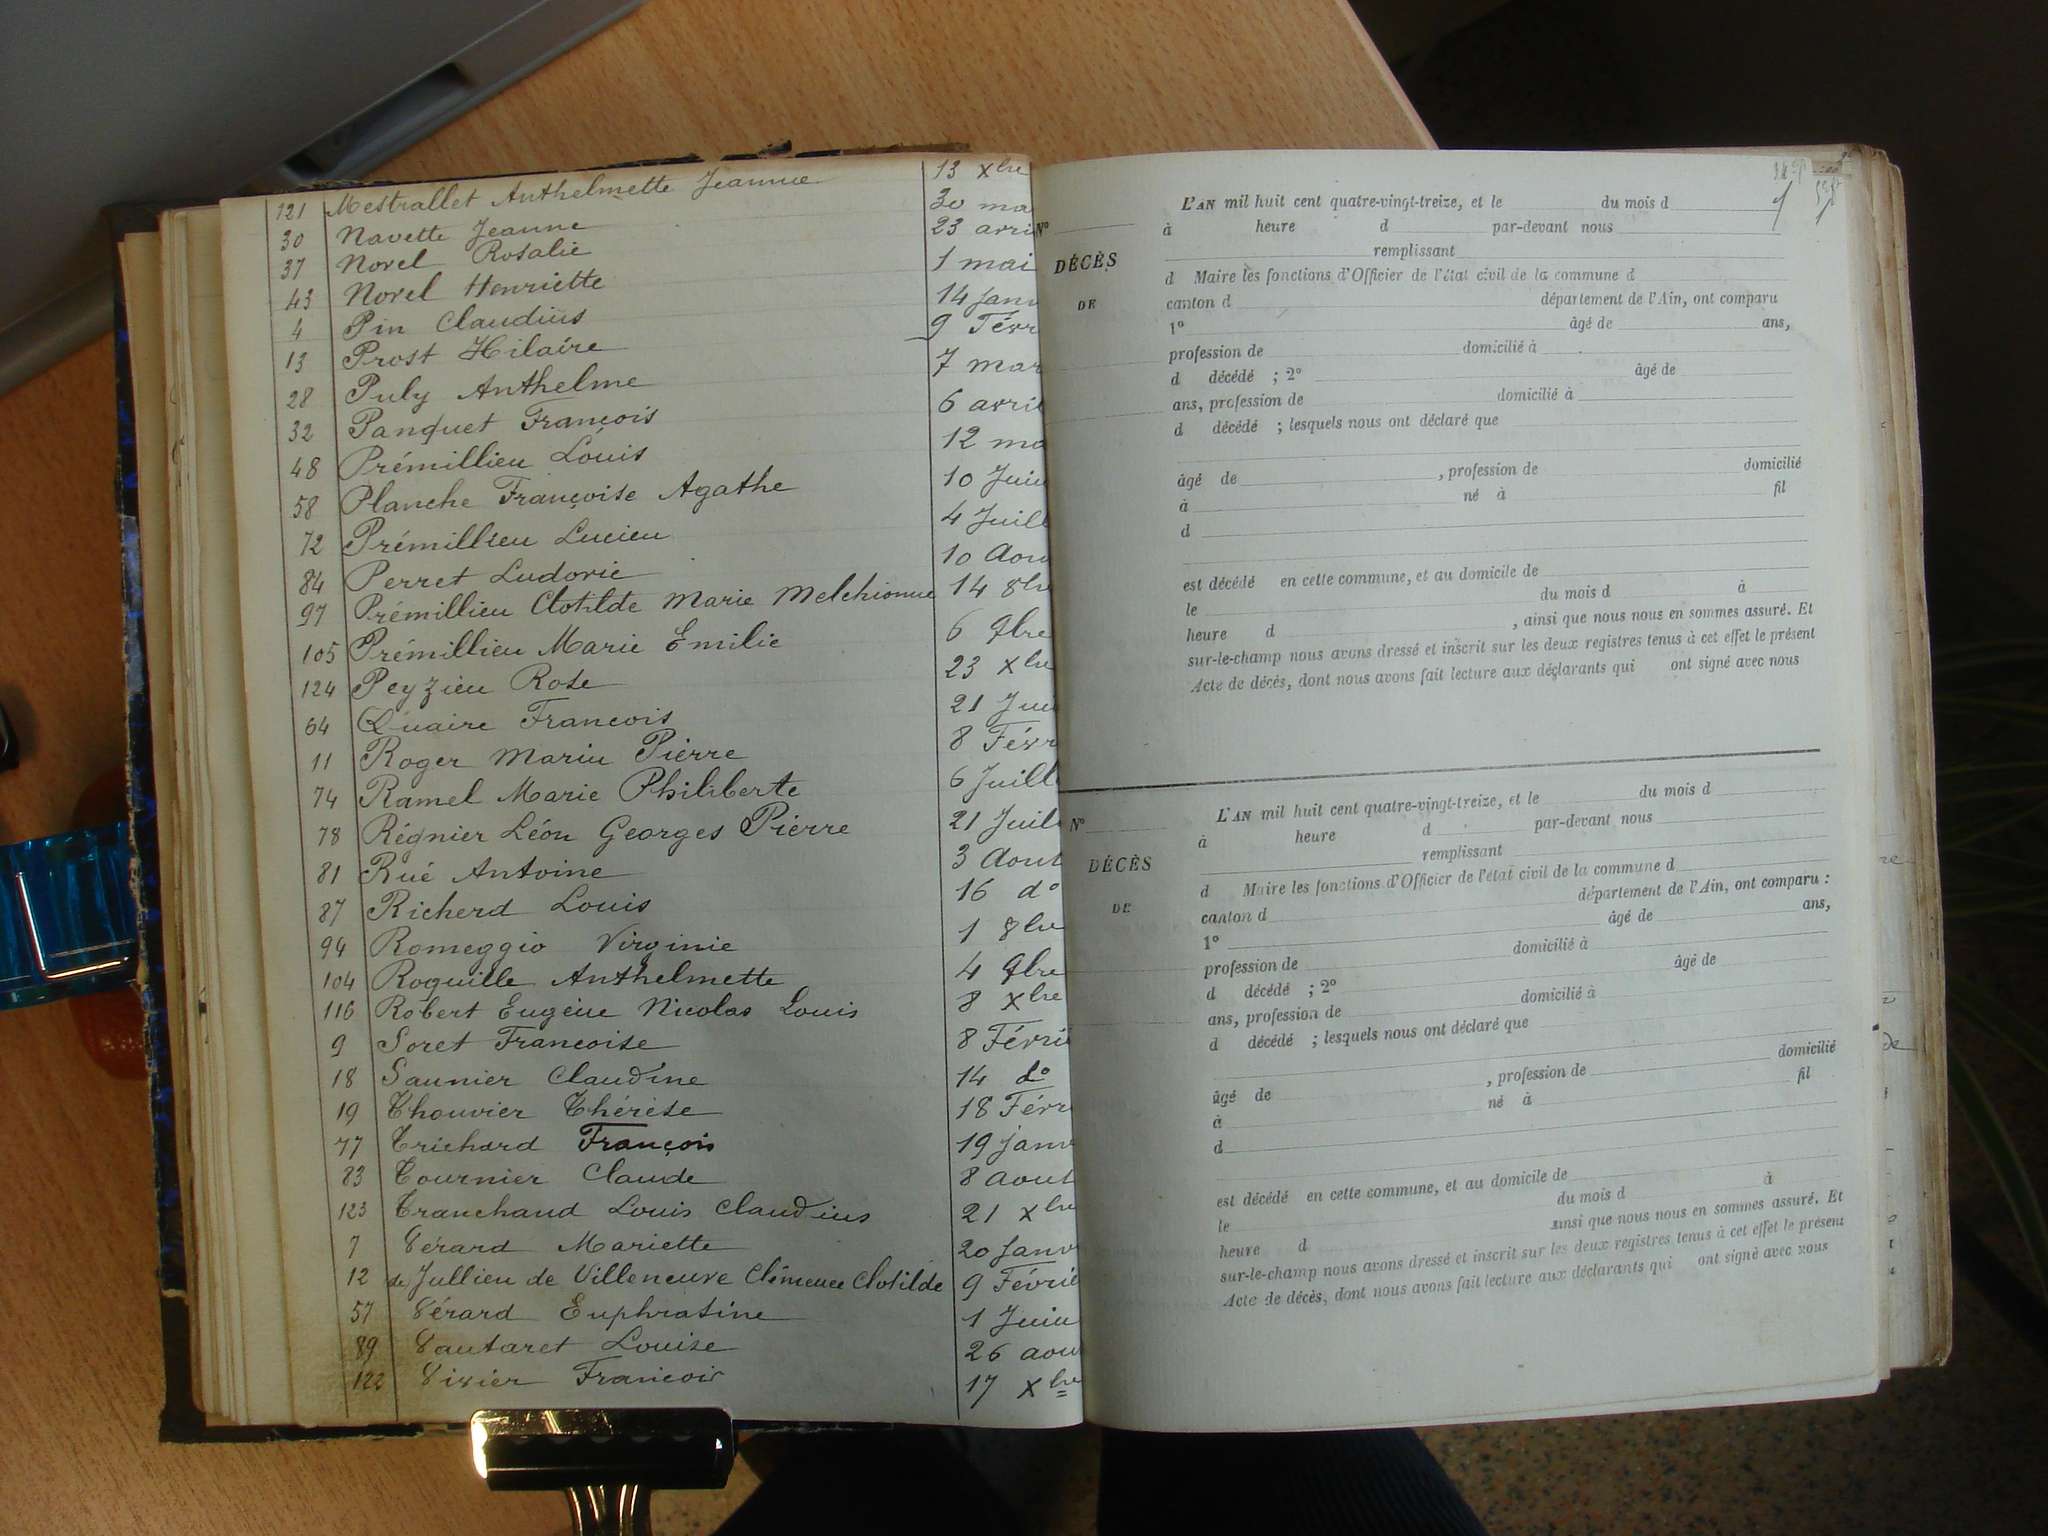 121 Mestrallet Anthelmette Jeannie 13 Xbre
30 Navette Jeanne 30 ma
37 Norel Rosalie 23 avri
43 Norel Henriette 1 mai
4 Pin Claudius 14 Janv
13 Prost Hilaire 9 Févr
28 Puly Anthelme 7 mar
32 Panquet François 6 avril
48 Prémillieu Louis 12 ma
58 Planche Françoise Agathe 10 Juin
72 Prémillieu Lucien 4 Juill
84 Perret Ludovic 10 Aou
97 Prémillieu Clotilde Marie Melchionne 14 8bre
105 Prémillieu Marie Emilie 6 9bre
124 Peyzieu Rose 23 Xbre
64 Quaire Francois 21 Jui
11 Roger Marin Pierre 8 Févr
74 Ramel Marie Philiberte 6 Juill
78 Régnier Léon Georges Pierre 21 Juil
81 Rué Antoine 3 Aout
87 Richerd Louis 16 do
94 Romeggio Virginie 1 8bre
104 Roquille Anthelmette 4 9bre
116 Robert Eugène Nicolas Louis 8 Xbre
9 Soret Francoise 8 Févri
18 Saunier Claudine 14 do
19 Thouvier Thérèse 18 Févr
77 Trichard François 19 janv
83 Tournier Claude 8 aout
123 Tranchand Louis Claudius 21 Xbre
7 Vérard Mariette 20 Janv
12 de Jullien de Villeneuve Clémence Clotilde 9 Févrie
57 Vérard Euphrasine 1 Juin
89 Vautaret Louise 26 aou
122 Vivier Francois 17 Xbre
L'AN mil huit cent quatre-vingt-treize, et le du mois d
N° à heure d par-devant nous
DÉCÈS remplissant
d Maire les fonctions d'Officier de l'état civil de la commune d
DE canton d département de l'Ain, ont comparu
1° âgé de ans,
profession de domicilié à
d décédé ; 2° âgé de
ans, profession de domicilié à
d décédé ; lesquels nous ont déclaré que
âgé de , profession de domicilié
à né à fil
d
est décédé en cette commune, et au domicile de
le du mois d à
heure d , ainsi que nous nous en sommes assuré. Et
sur-le-champ nous avons dressé et inscrit sur les deux registres tenus à cet effet le présent
Acte de décès, dont nous avons fait lecture aux déclarants qui ont signé avec nous
L'AN mil huit cent quatre-vingt-treize, et le du mois d
N° à heure d par-devant nous
DÉCÈS remplissant
d Maire les fonctions d'Officier de l'état civil de la commune d
DE canton d département de l'Ain, ont comparu :
1° âgé de ans,
profession de domicilié à
d décédé ; 2° âgé de
ans, profession de domicilié à
d décédé ; lesquels nous ont déclaré que
âgé de , profession de domicilié
à né à fil
d
est décédé en cette commune, et au domicile de
le du mois d à
heure d ainsi que nous nous en sommes assuré. Et
sur-le-champ nous avons dressé et inscrit sur les deux registres tenus à cet effet le présent
Acte de décès, dont nous avons fait lecture aux déclarants qui ont signé avec nous